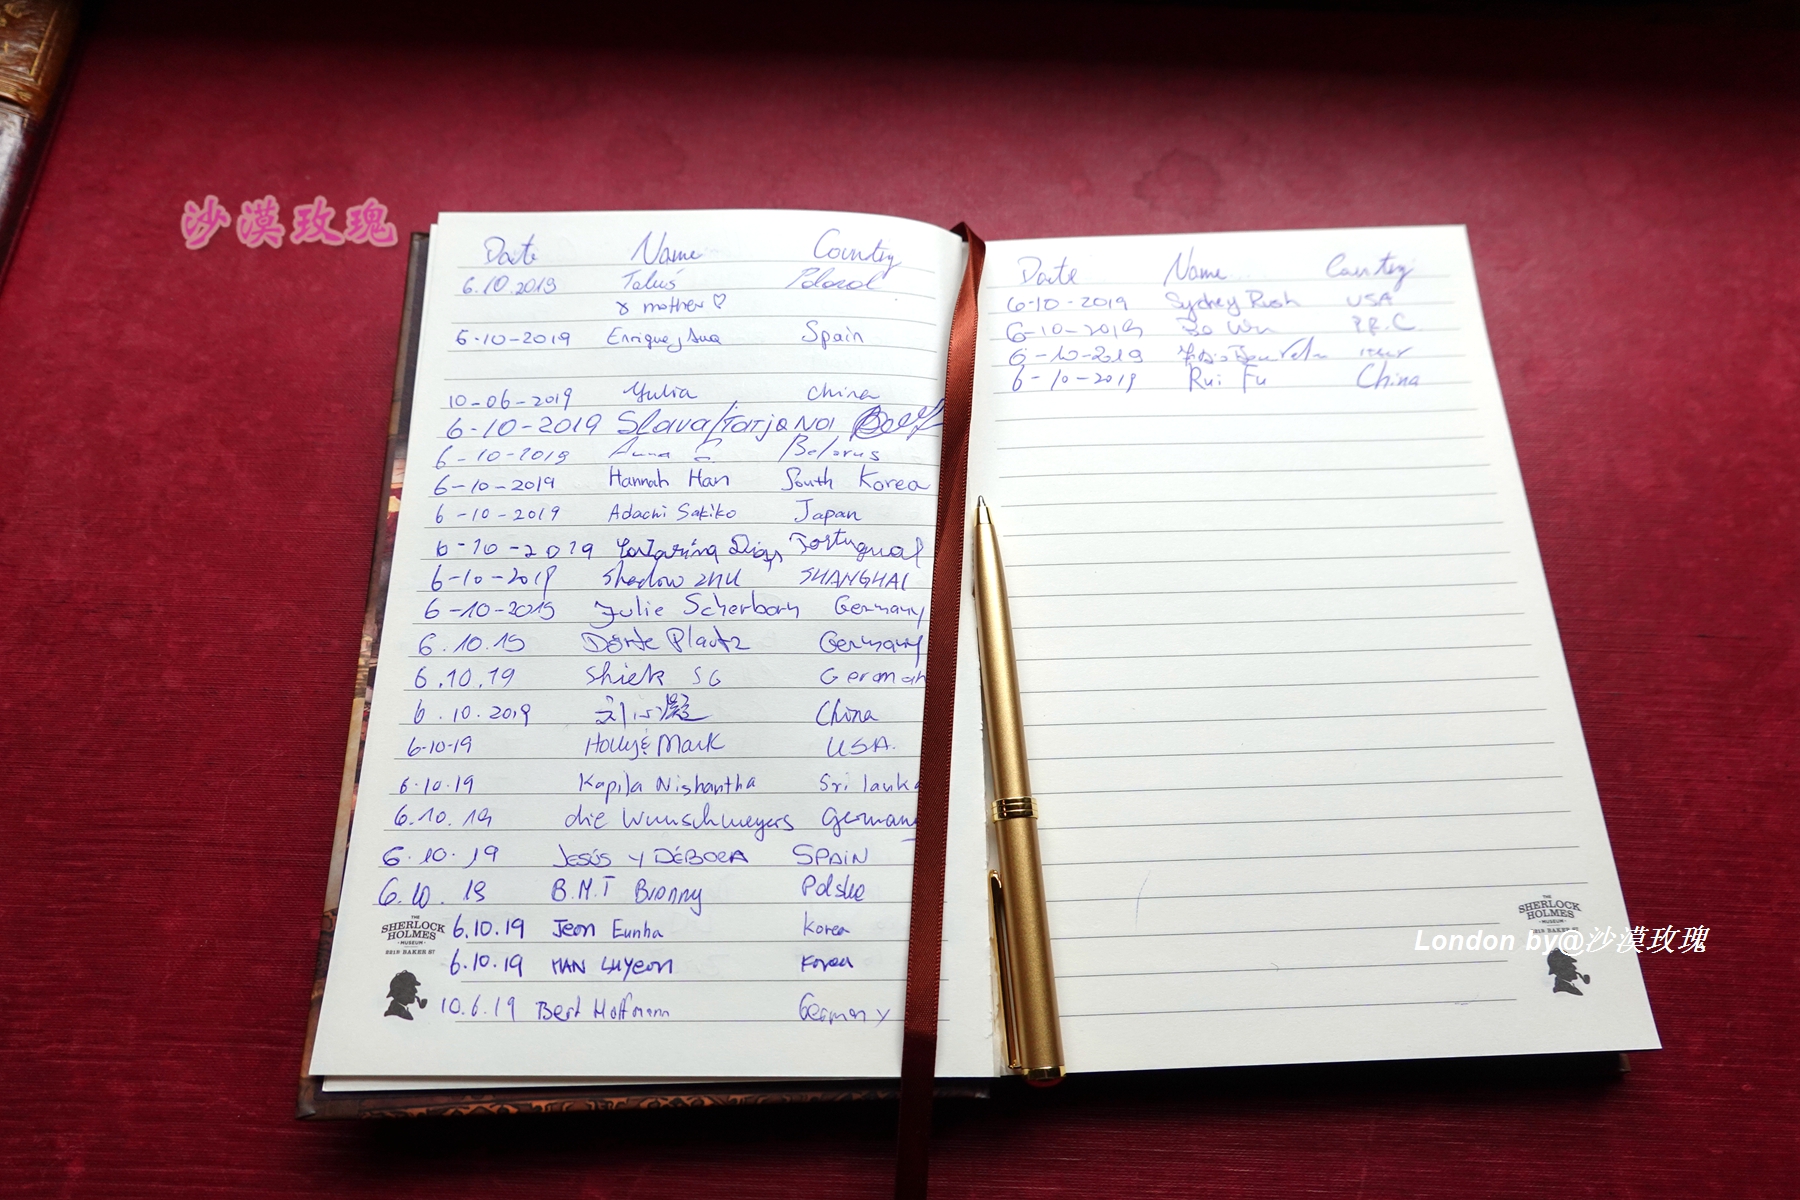 沙漠玫瑰
Date Name Country
6.10.2019 Poland
& mother ♡
6-10-2019 Enrique y Ana Spain
10-06-2019 Yulia China
6-10-2019 Slava/Tatjana
6-10-2019 Anna Belarus
6-10-2019 Hannah Han South Korea
6-10-2019 Adachi Sakiko Japan
6-10-2019 Portugual
6-10-2019 Shadow ZHU SHANGHAI
6-10-2019 Julie Scherborn Germany
6.10.19 Dörte Plautz Germany
6.10.19 Shiek SG German
6.10.2019 刘心凝 China
6-10-19 Holly & Mark USA.
6.10.19 Kapila Nishantha Sri lanka
6.10.19 die Wunschmeyers Germany
6.10.19 JESÚS Y DÉBORA SPAIN
6.10.19 B.M.T Bronny Polska
6.10.19 Jeon Eunha Korea
6.10.19 HAN Korea
10.6.19 Bert Hoffmann Germany
THE
SHERLOCK
HOLMES
MUSEUM
221B BAKER ST
Date Name Country
6-10-2019 Sydney Rush USA
6-10-2019 Bo Wu P.R.C
6-10-2019
6-10-2019 Rui Fu China
THE
SHERLOCK
HOLMES
MUSEUM
221B BAKER ST
London by@沙漠玫瑰